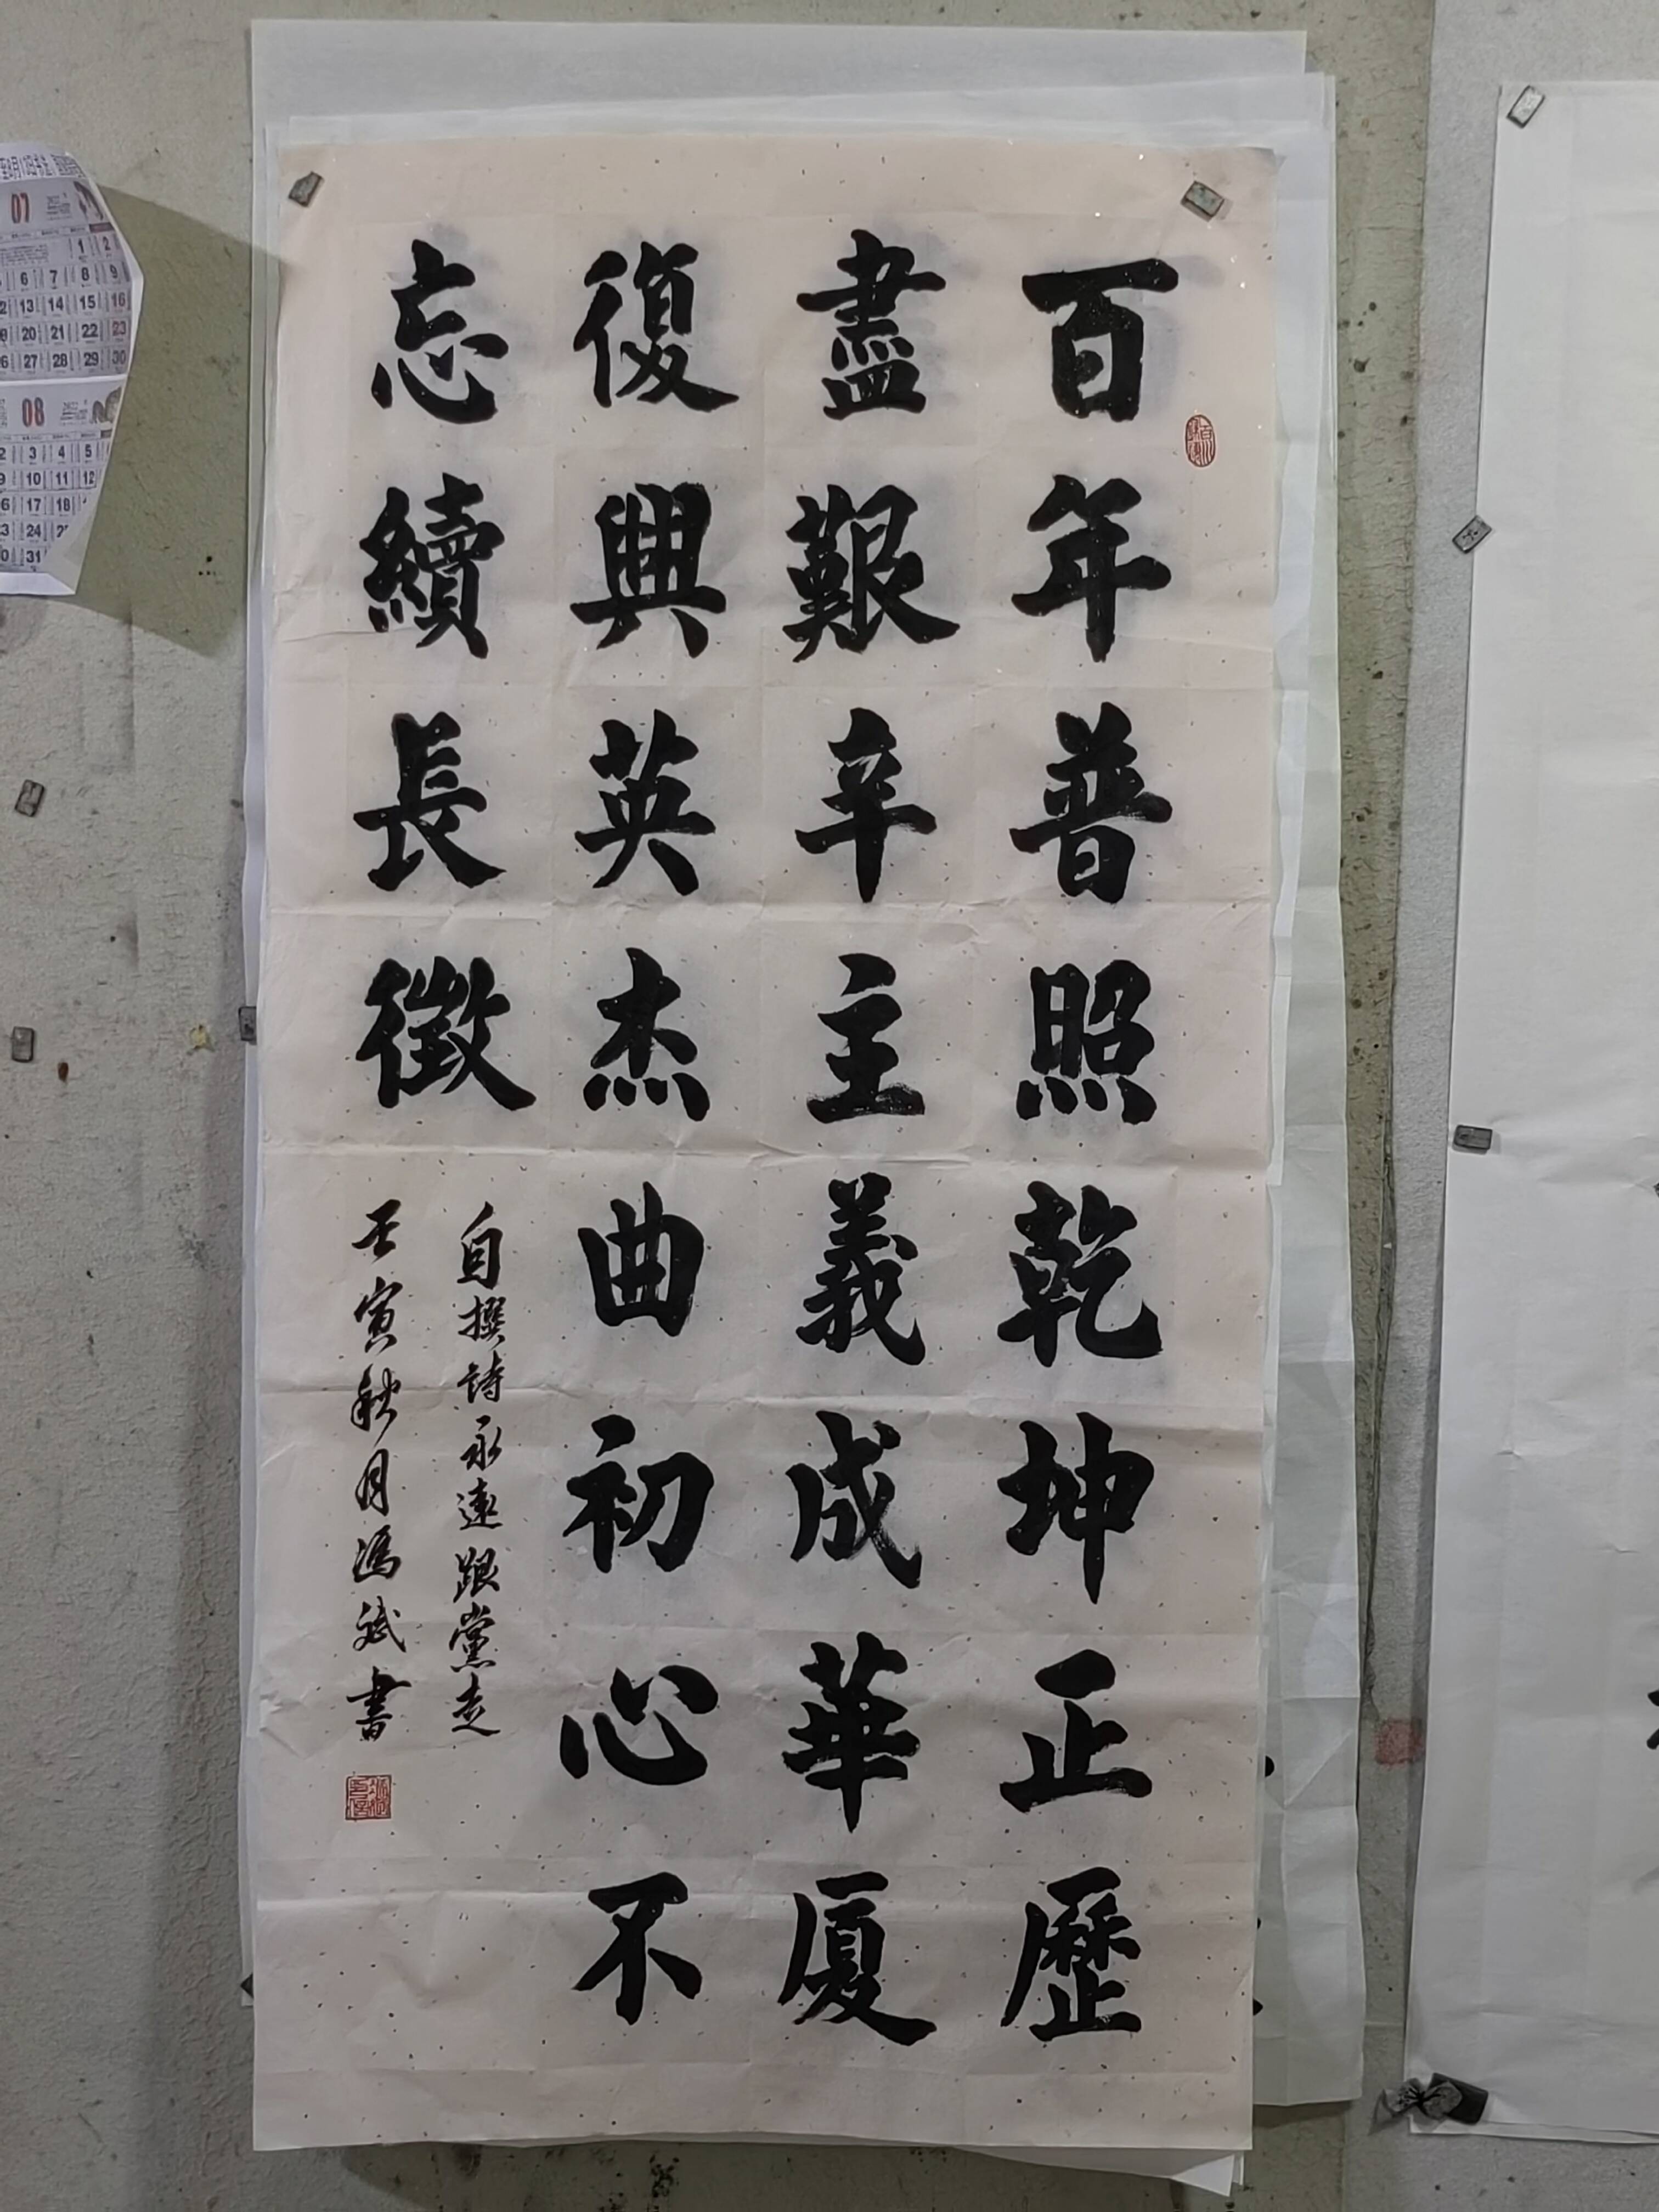 百年普照乾坤正歷
盡艱辛主義成華厦
復興英杰曲初心不
忘續長徵
自撰詩永遠跟黨走
壬寅秋月馮斌書
07
1 2
6 7 8 9
13 14 15 16
20 21 22 23
27 28 29 30
08
2 3 4 5
9 10 11 12
16 17 18
23 24
31